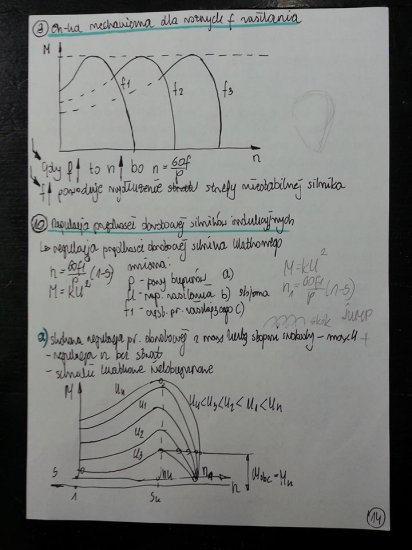 9) Ch-ka mechaniczna dla różnych f zasilania
M
f1 f2 f3
n
Gdy f↑ to n↑ bo n = 60f/p
f↑ powoduje wydłużenie strefy niestabilnej silnika
10) Regulacja prędkości obrotowej silników indukcyjnych
↳ regulacja prędkości obrotowej silnika
n = 60f1/p (1-s)
M = kU²
można:
p - pary biegunów a)
U - nap. zasilania b)
f1 - częst. pr. zasilającego c)
M = kU²
n1 = 60f/p (1-s)
skok
JUMP
a) skokowa regulacja pr. obrotowej
- regulacja n bez strat
- silniki klatkowe wielobiegowe
M
Un
U1
U2
U3
U4<U3<U2<U1<Un
Mobc = Mn
S
1
Sk
nk
n
14